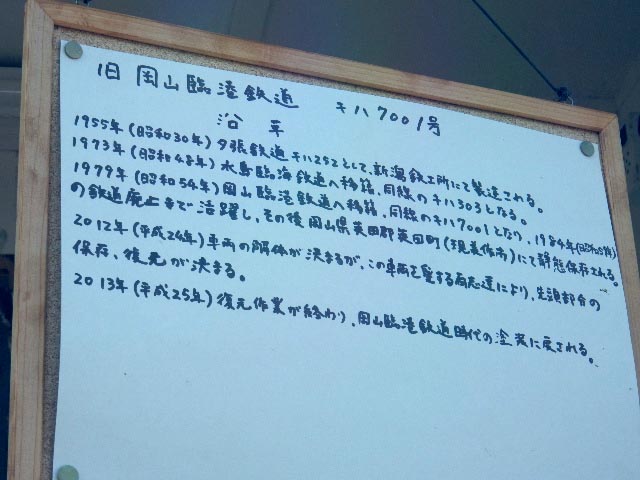 旧 岡山臨港鉄道 キハ7001号
沿革
1955年(昭和30年)夕張鉄道キハ252として、新潟鉄工所にて製造される。
1973年(昭和48年)水島臨海鉄道へ移籍、同線のキハ303となる。
1979年(昭和54年)岡山臨港鉄道へ移籍、同線のキハ7001となり、1984年(昭和59年)
の鉄道廃止まで活躍し、その後岡山県英田郡英田町(現美作市)にて静態保存される。
2012年(平成24年)車両の解体が決まるが、この車両を愛する有志達により、先頭部分の
保存、復元が決まる。
2013年(平成25年)復元作業が終わり、岡山臨港鉄道時代の塗装に戻される。